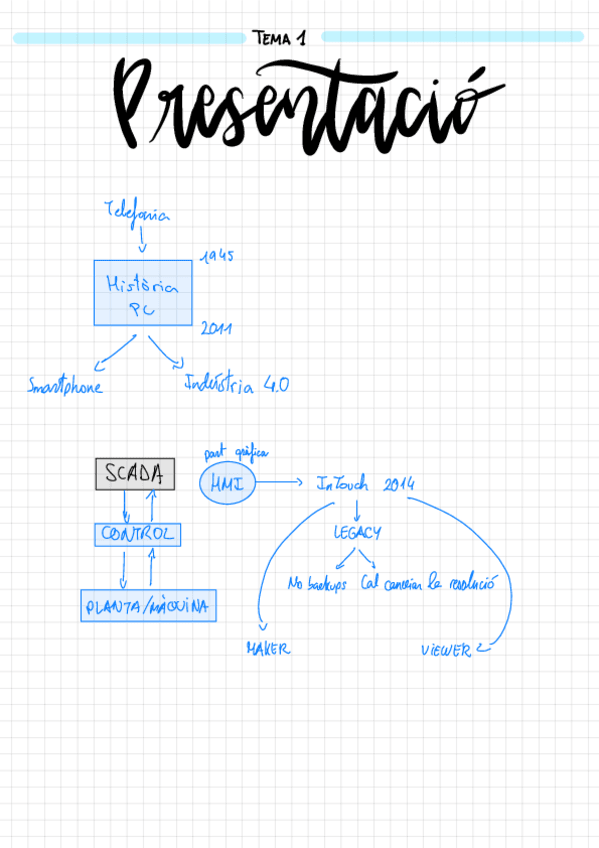 TEMA 1
Presentació
Telefonia
1945
Història
PC
2011
Smartphone
Indústria 4.0
part gràfica
SCADA
HMI
InTouch 2014
CONTROL
LEGACY
No backups
Cal canviar la resolució
PLANTA/MÀQUINA
MAKER
VIEWER